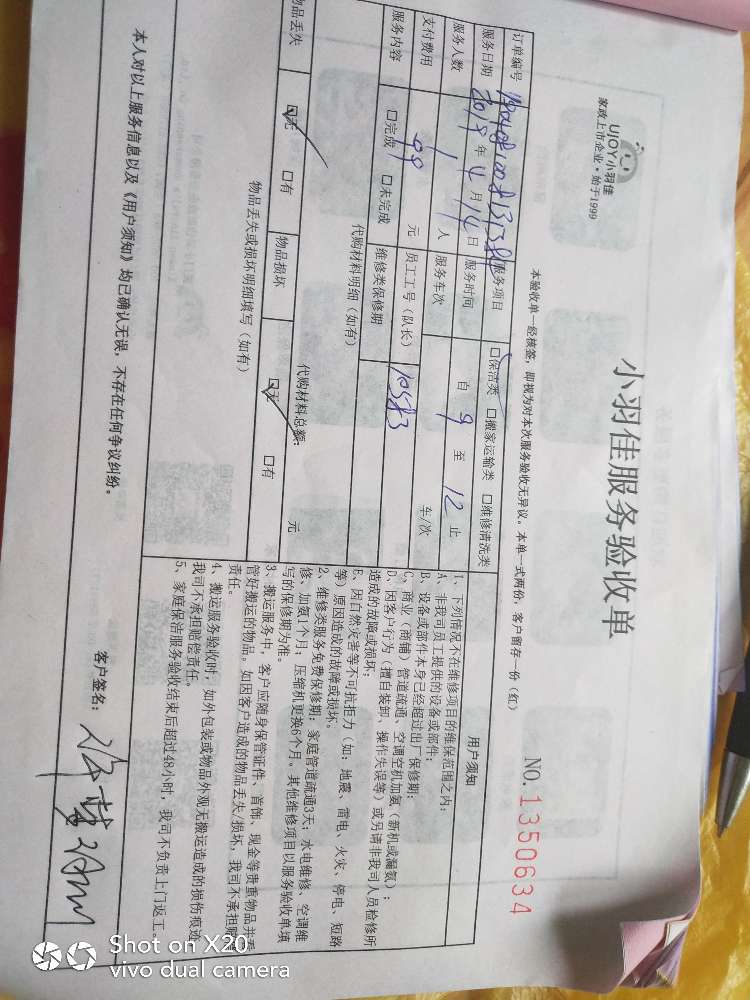 UJOY小羽佳
家政上市企业·始于1999
小羽佳服务验收单
NO. 1350634
本验收单一经核签，即视为对本次服务验收无异议。本单一式两份，客户留存一份（红）
订单编号
服务项目 □保洁类 □搬家运输类 □维修清洗类
服务日期 2019 年 4 月 14 日 服务时间 自 9 至 12 止
服务人数 1 人 服务车次 车/次
支付费用 99 元 员工工号（队长） 10583
服务内容 □完成 □未完成 维修类保修期
代购材料明细（如有）
代购材料总额： 元
物品丢失 □无 □有 物品损坏 □无 □有
物品丢失或损坏明细填写（如有）
用户须知
1、下列情况不在维修项目的维保范围之内：
A、非我司员工提供的设备或部件；
B、设备或部件本身已经超过出厂保修期；
C、商业（商铺）管道疏通、空调空机加氨（新机或漏氨）；
D、因客户行为（擅自装卸、操作失误等）或另请非我司人员检修所
造成的故障或损坏；
E、因自然灾害等不可抗拒力（如：地震、雷电、火灾、停电、短路
等）原因造成的故障或损坏。
2、维修类服务免费保修期：家庭管道疏通3天；水电维修、空调维
修、加氨1个月；压缩机更换6个月。其他维修项目以服务验收单填
写的保修期为准。
3、搬运服务中，客户应随身保管证件、首饰、现金等贵重物品并看
管好搬运的物品。如因客户造成的物品丢失/损坏，我司不承担赔
责任。
4、搬运服务验收时，如外包装或物品外观无搬运造成的损伤痕迹
我司不承担赔偿责任。
5、家庭保洁服务验收结束后超过48小时，我司不负责上门返工。
本人对以上服务信息以及《用户须知》均已确认无误，不存在任何争议纠纷。
客户签名：
Shot on X20
vivo dual camera